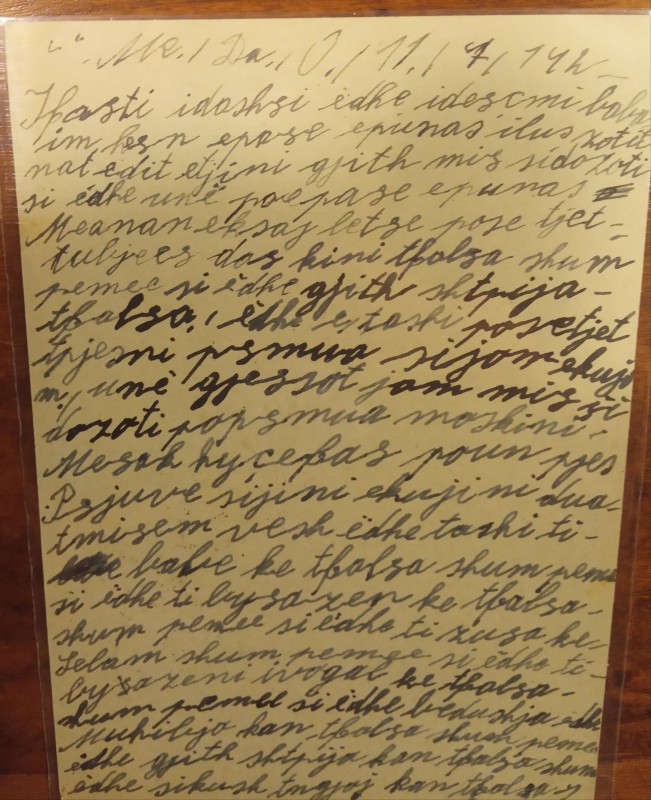 " " Me. / Da. / 0. / 11. / 7 / 142 _
Ifasti idashsi ëdhe idescmi baba
im, kesn epase epunas ilus zotit
nat edit etjini gjith mis sidozoti
si ëdhe unë poepase epunas
Meanan eksaj letse pose tjet -
tubjees das kini tfalsa shum
pemee si ëdhe gjith shtpija -
tfalsa, ëdhe e, taski posetjet
tpjesni psmua sijam ekuji
m, unë gjessot jam mis si
dozoti popsmua moskini -
Mesak ky çefas poun pjes
Psjuve sijini ekujini dua -
tmisem vesh ëdhe taski ti -
babe ke tfalsa shum peme
si ëdhe ti bysazen ke tfalsa -
shum pemee si ëdhe ti zusa ke -
selam shum pemee si ëdhe ti -
bysazeni ivogal ke tfalsa -
shum pemee si ëdhe bedushja ëdhe
Muhibja kan tfalsa shum pemee
ëdhe gjith shtpija kan tfalsa shum
ëdhe sikush tngjoj kan tfalsa